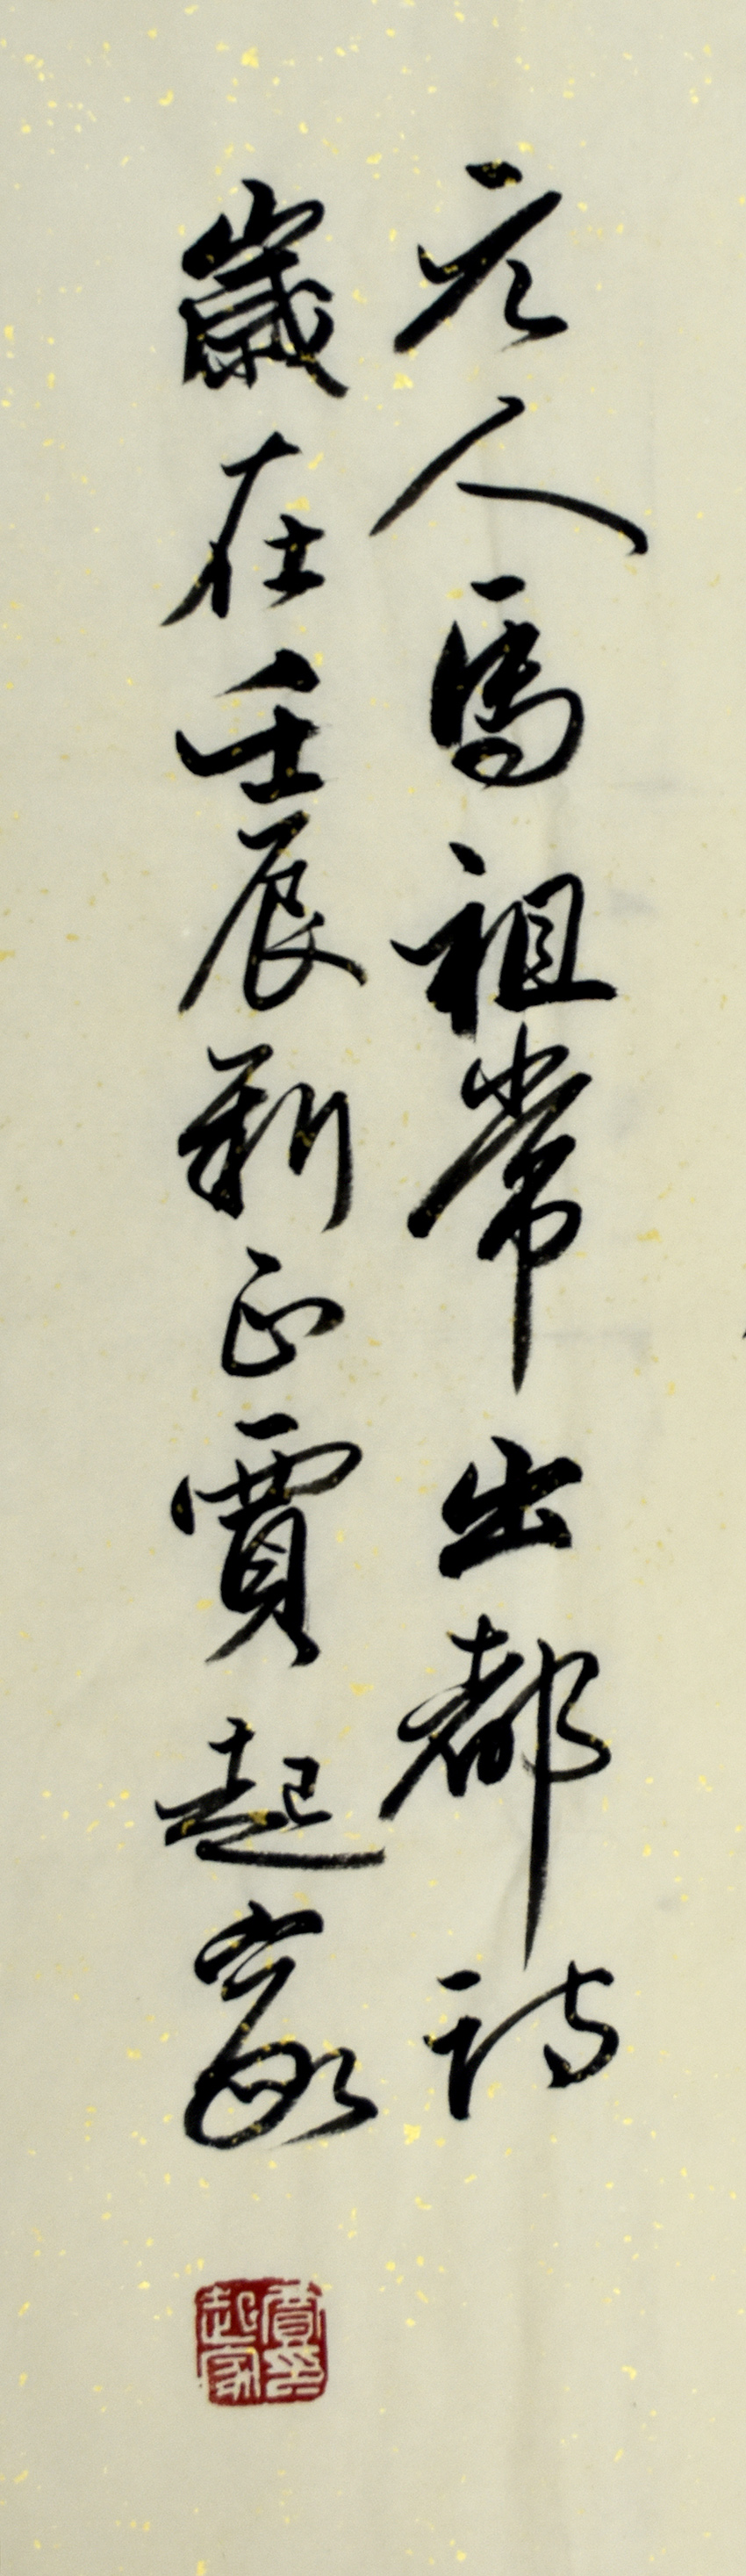 元人馬祖常出都詩
歲在壬辰新正賈起家
賈印起家